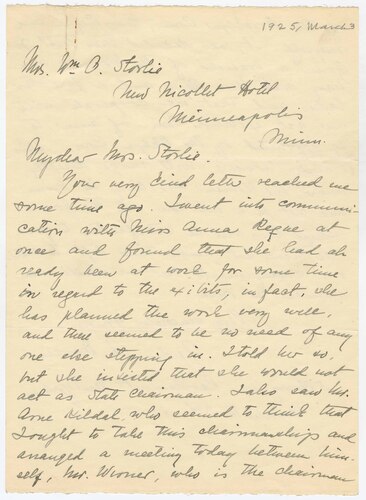 1925, March 3
Mrs. Wm B. Storlie
New Nicollet Hotel
Minneapolis
Minn.
My dear Mrs. Storlie.
Your very kind letter reached me
some time ago. I went into communi-
cation with Miss Anna Regue at
once and found that she had al-
ready been at work for some time
in regard to the exibits, in fact, she
has planned the work very well,
and there seemed to be no need of any
one else stepping in. I told her so,
but she insisted that she would not
act as State Chairman. I also saw Mr.
Arne Kildal who seemed to think that
I ought to take this chairmanship and
arranged a meeting today between him-
self, Mr. Werner, who is the chairman